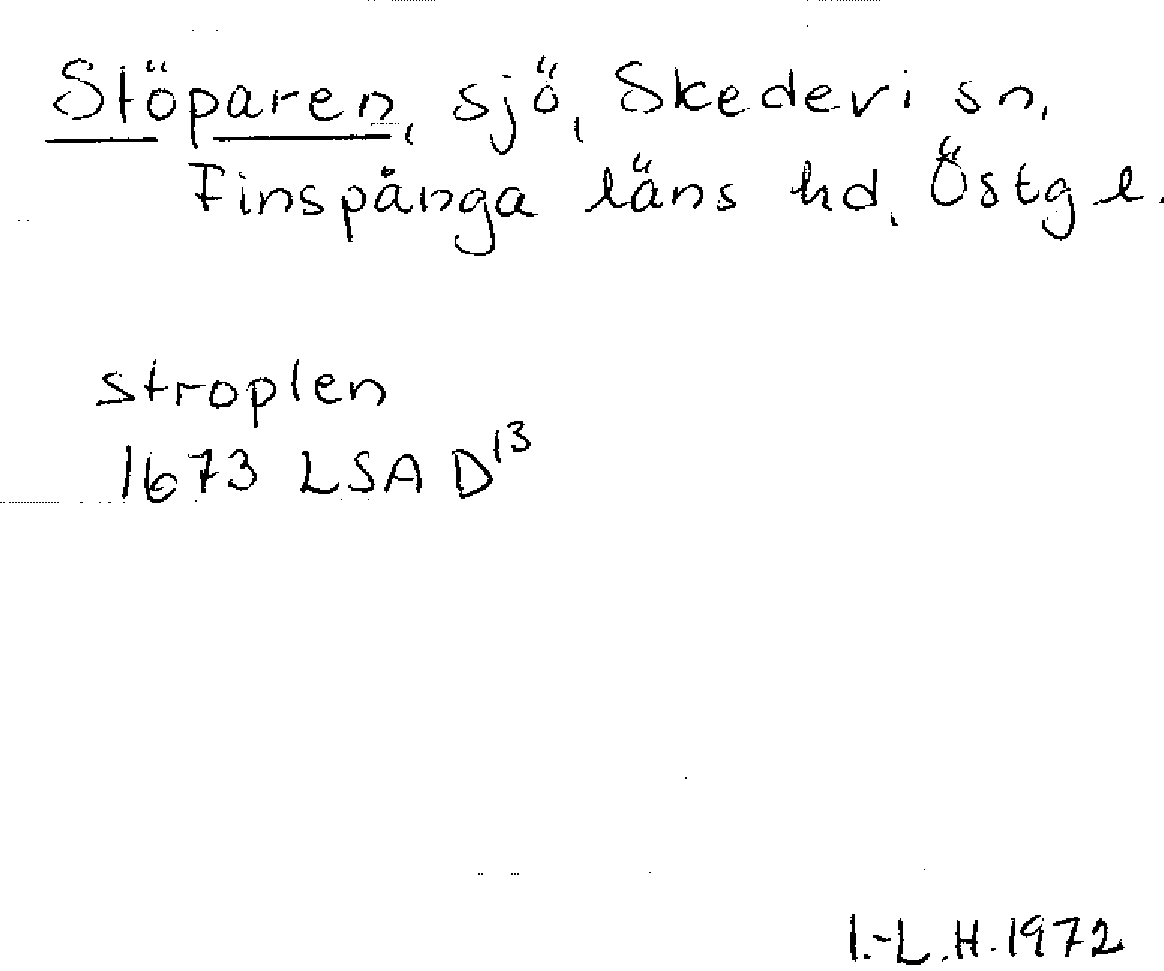 Stöparen, sjö, Skedevi sn,
Finspånga läns hd. Östg l.
stroplen
1673 LSA D¹³
I.-L.H. 1972